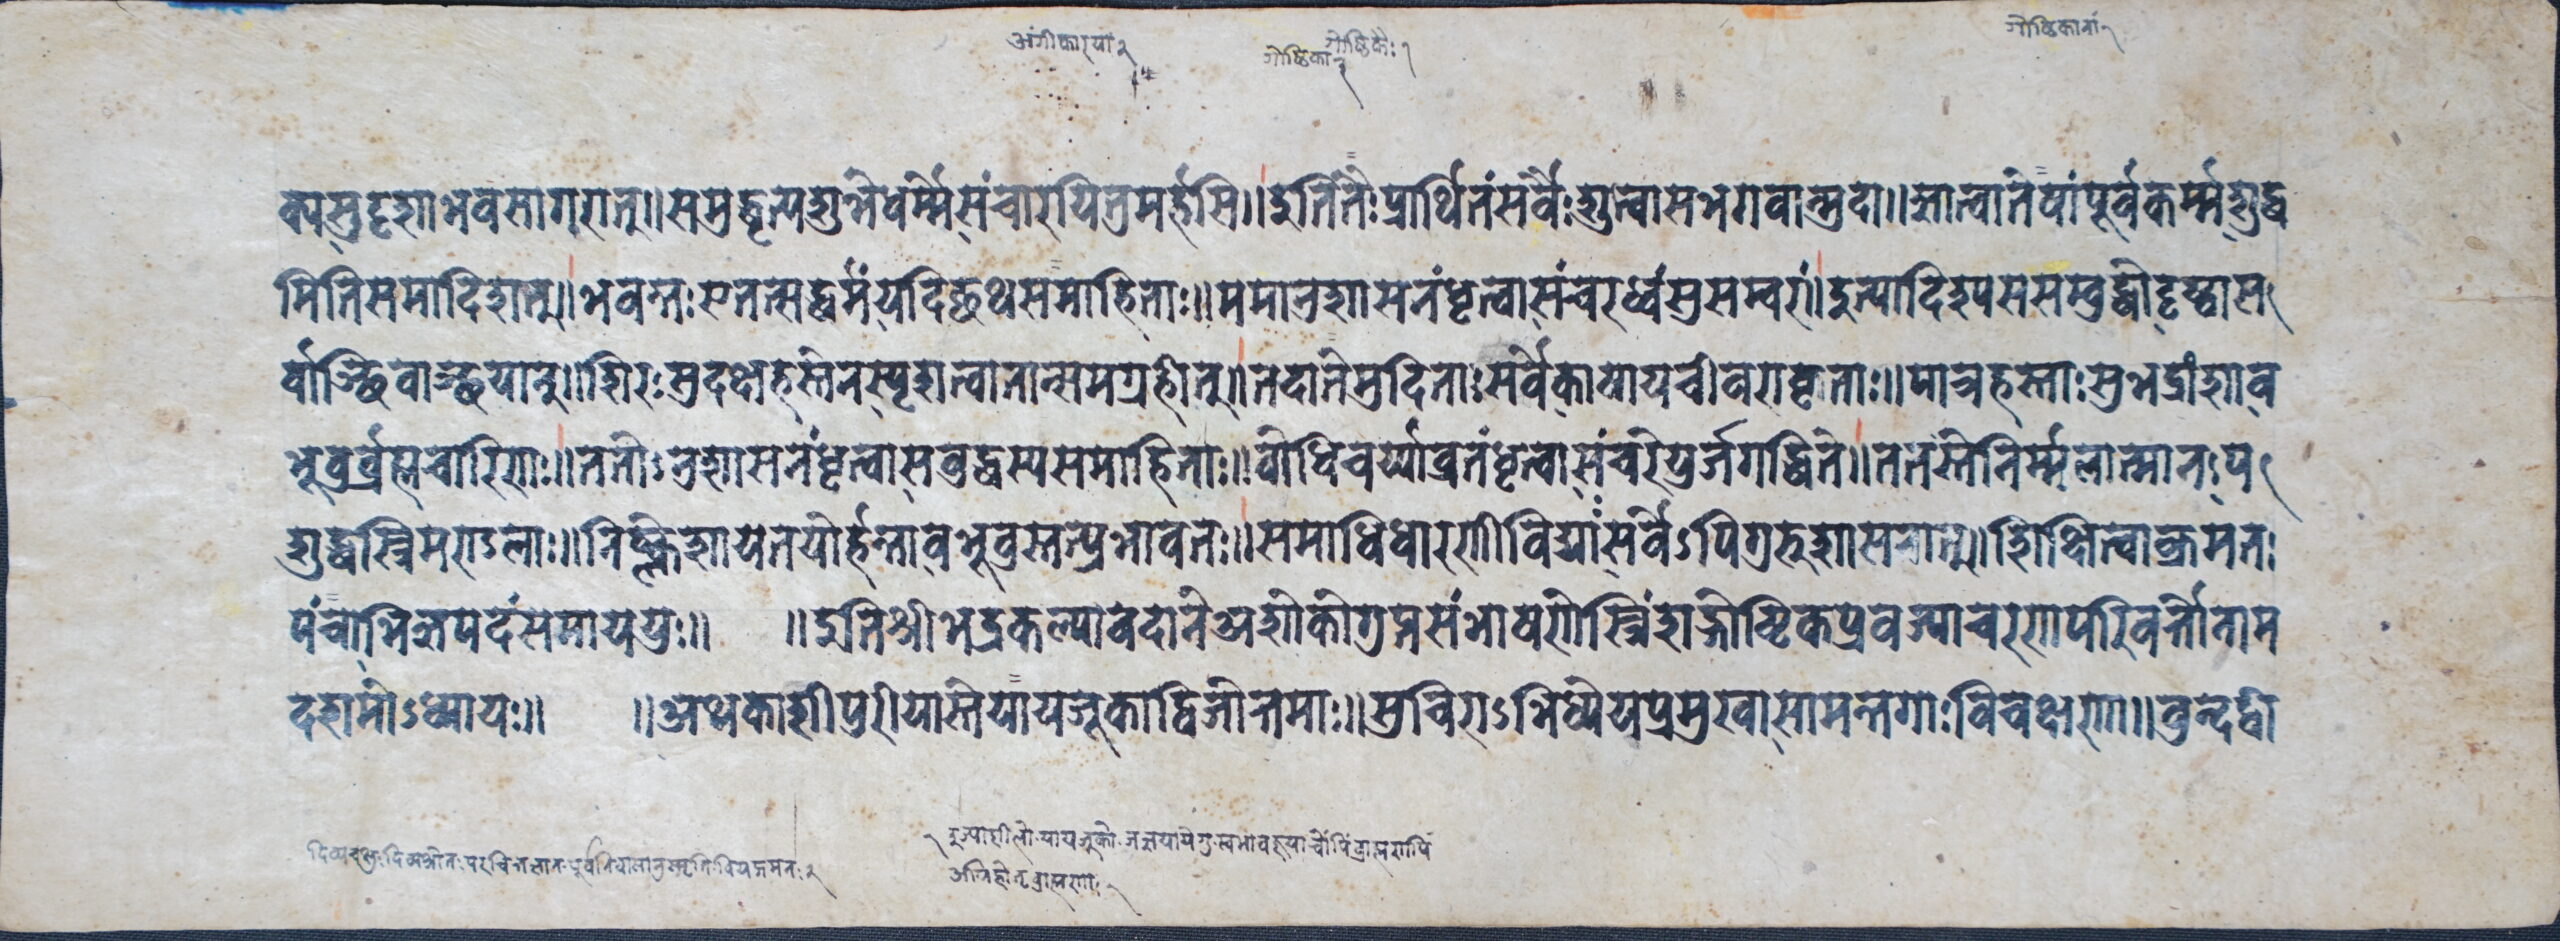 अंगीकारयां २
गोष्ठिकैः १
गोष्ठिका २
गोष्ठिकानां १
क्य सुदृशा भवसागरात्॥ समुद्धृत्य शुभे धर्म्मे संचारयितुमर्हसि॥ इति तैः प्रार्थितं सर्वैः श्रुत्वा स भगवान्स्तदा॥ ज्ञात्वा तेषां पूर्वकर्म्म शुद्ध
मिति समादिशत्॥ भवन्तः एतत्सद्धर्मं यदिच्छथ समाहिताः॥ ममानुशासनं धृत्वा संचरध्वं सुसम्वरां॥ इत्यादिश्य स सम्बुद्धो दृष्ट्वा स
र्वाञ्छिवाञ्छयान्॥ शिरःसु दक्षहस्तेन स्पृशन्त्वा तान्समग्रहीत्॥ तदा ते मुदिताः सर्वे काषायचीवरावृताः॥ पात्रहस्ताः सुभद्रांशा व
भूवुर्व्रह्मचारिणः॥ ततोऽनुशासनं धृत्वा सवुद्धस्य समाहिताः॥ वोधिचर्य्याव्रतं धृत्वा संचरेयुर्जगद्धिते॥ ततस्ते निर्म्मलात्मानः प
शुद्धस्त्रिमण्डलाः॥ निष्क्लेशा येतयोर्हन्ता वभूवुस्तत्प्रभावतः॥ समाधिधारणीविद्यां सर्वेऽपि गुरुशासनात्॥ शिक्षित्वा क्रमतः
पंचाभिज्ञपदं समाययुः॥ ॥ इति श्रीभद्रकल्पावदाने अशोकोगुप्तसंभाषणे स्त्रिंशद्गोष्ठिकप्रवज्याचरणपरिवर्त्तो नाम
दशमोऽध्यायः॥ ॥ अथ काशीपुरीयास्ते यायजूका द्विजोत्तमाः॥ सुचिराऽभिध्येयप्रमुखा सामन्तगाः विचक्षणा॥ वुन्देद्वी
दिव्यचक्षुः दिव्यश्रोत्रः परचित्तज्ञान पूर्वनिवासानुस्मृति २
१ इज्याशीलो यायजूको
अग्निहोतृ ब्राह्मणाः १